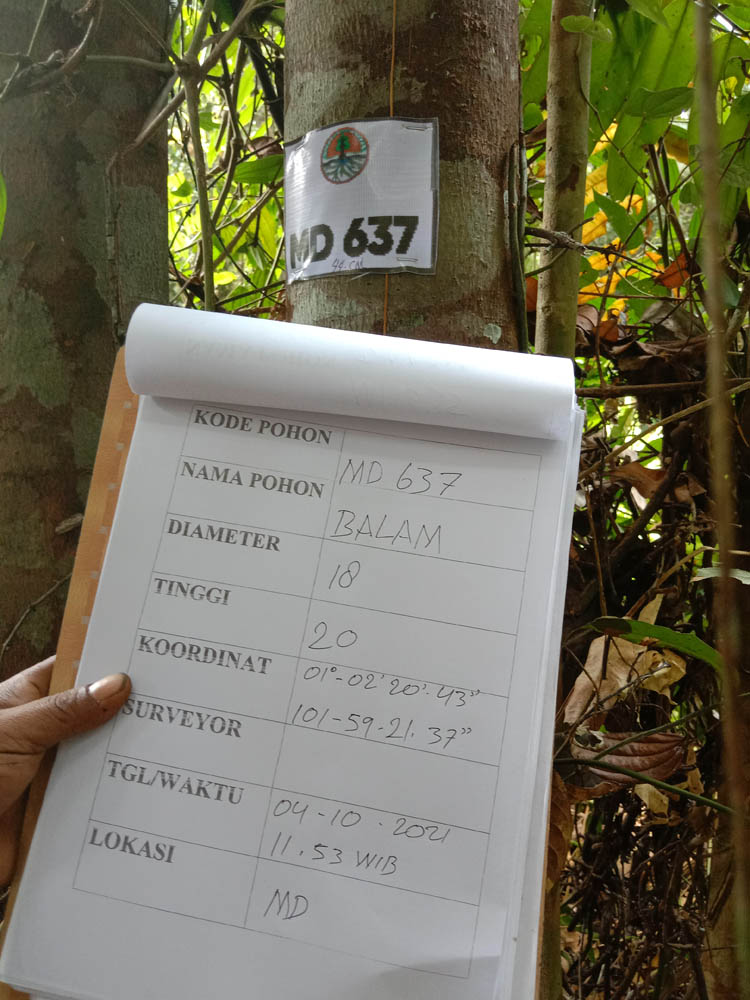 MD 637
44 CM
KODE POHON MD 637
NAMA POHON BALAM
DIAMETER 18
TINGGI 20
KOORDINAT 01°-02'20'.43"
101-59-21.37"
SURVEYOR
TGL/WAKTU 04-10.2021
11.53 WIB
LOKASI MD